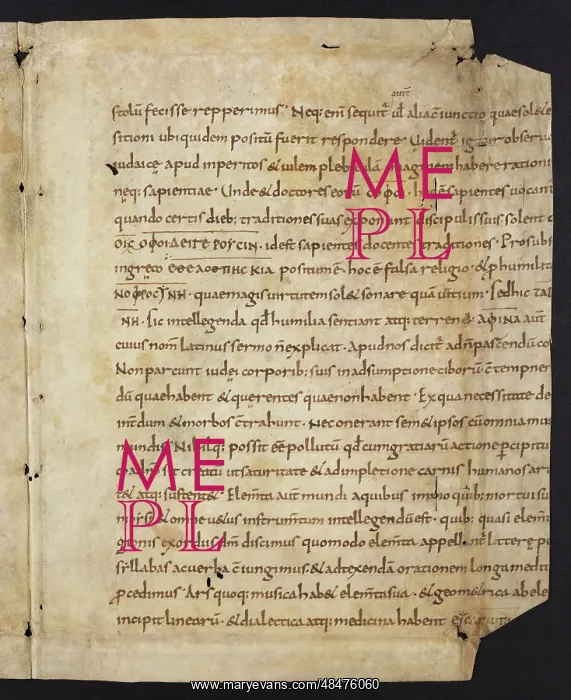 autē
stolū fecisse repperimus· Neq; enī sequit̄ ut̄ aliā c̄iunctio quae sol& e
sitioni ubi quidem positū fuerit respondere· Uident̄ igitur obserua
iudaice apud imperitos & uilem plebeculā imaginem habere rationi
neq; sapientiae· Unde & doctores eorū σοφοι· hoc ē sapientes uocan
quando certis dieb; traditiones suas exponunt discipulis suis solent
idest sapientes docent traditiones· Pro subs
in greco positum ē· hoc ē falsa religio· & p humilit
quae magis uirtutem sol& sonare quā uitium· Sed hic
Sic intellegenda qd̄ humilia sentiant atq; terrena· αφινα aut̄
cuius nom̄ latinus sermo n̄ explicat· Apud nos dicit̄ ad n̄ parcendū co
Non parcunt iudei corporib; suis in adsumptione ciborū c̄tempner
dū quae habent & querentes quae non habent· Ex qua necessitate de
int̄dum & morbos c̄trahunt· Nec onerant sem&ipsos cū omnia mun
mundis· Nihilq; possit ēē pollutū qd̄ cum gratiarū actione p̄cipitu
creatū ut saturitate & adimpletione carnis humanos ar
atq; sustent&· Elem̄ta aut̄ mundi a quibus impio quib; mortui su
& omne uelus instrum̄tum intellegendū est· quib; quasi elem̄
gionis exordiis dm̄ discimus quomodo elem̄ta appellant̄ litterę p
syllabas ac uerba c̄iungimus· & ad texendā orationem longa medit
p̄cedimus· Ars quoq; musica hab& elem̄ta sua· & geom&rica ab ele
incipit linearū· & dialectica atq; medicina habent
ME
PL
ME
PL
www.maryevans.com/48476060